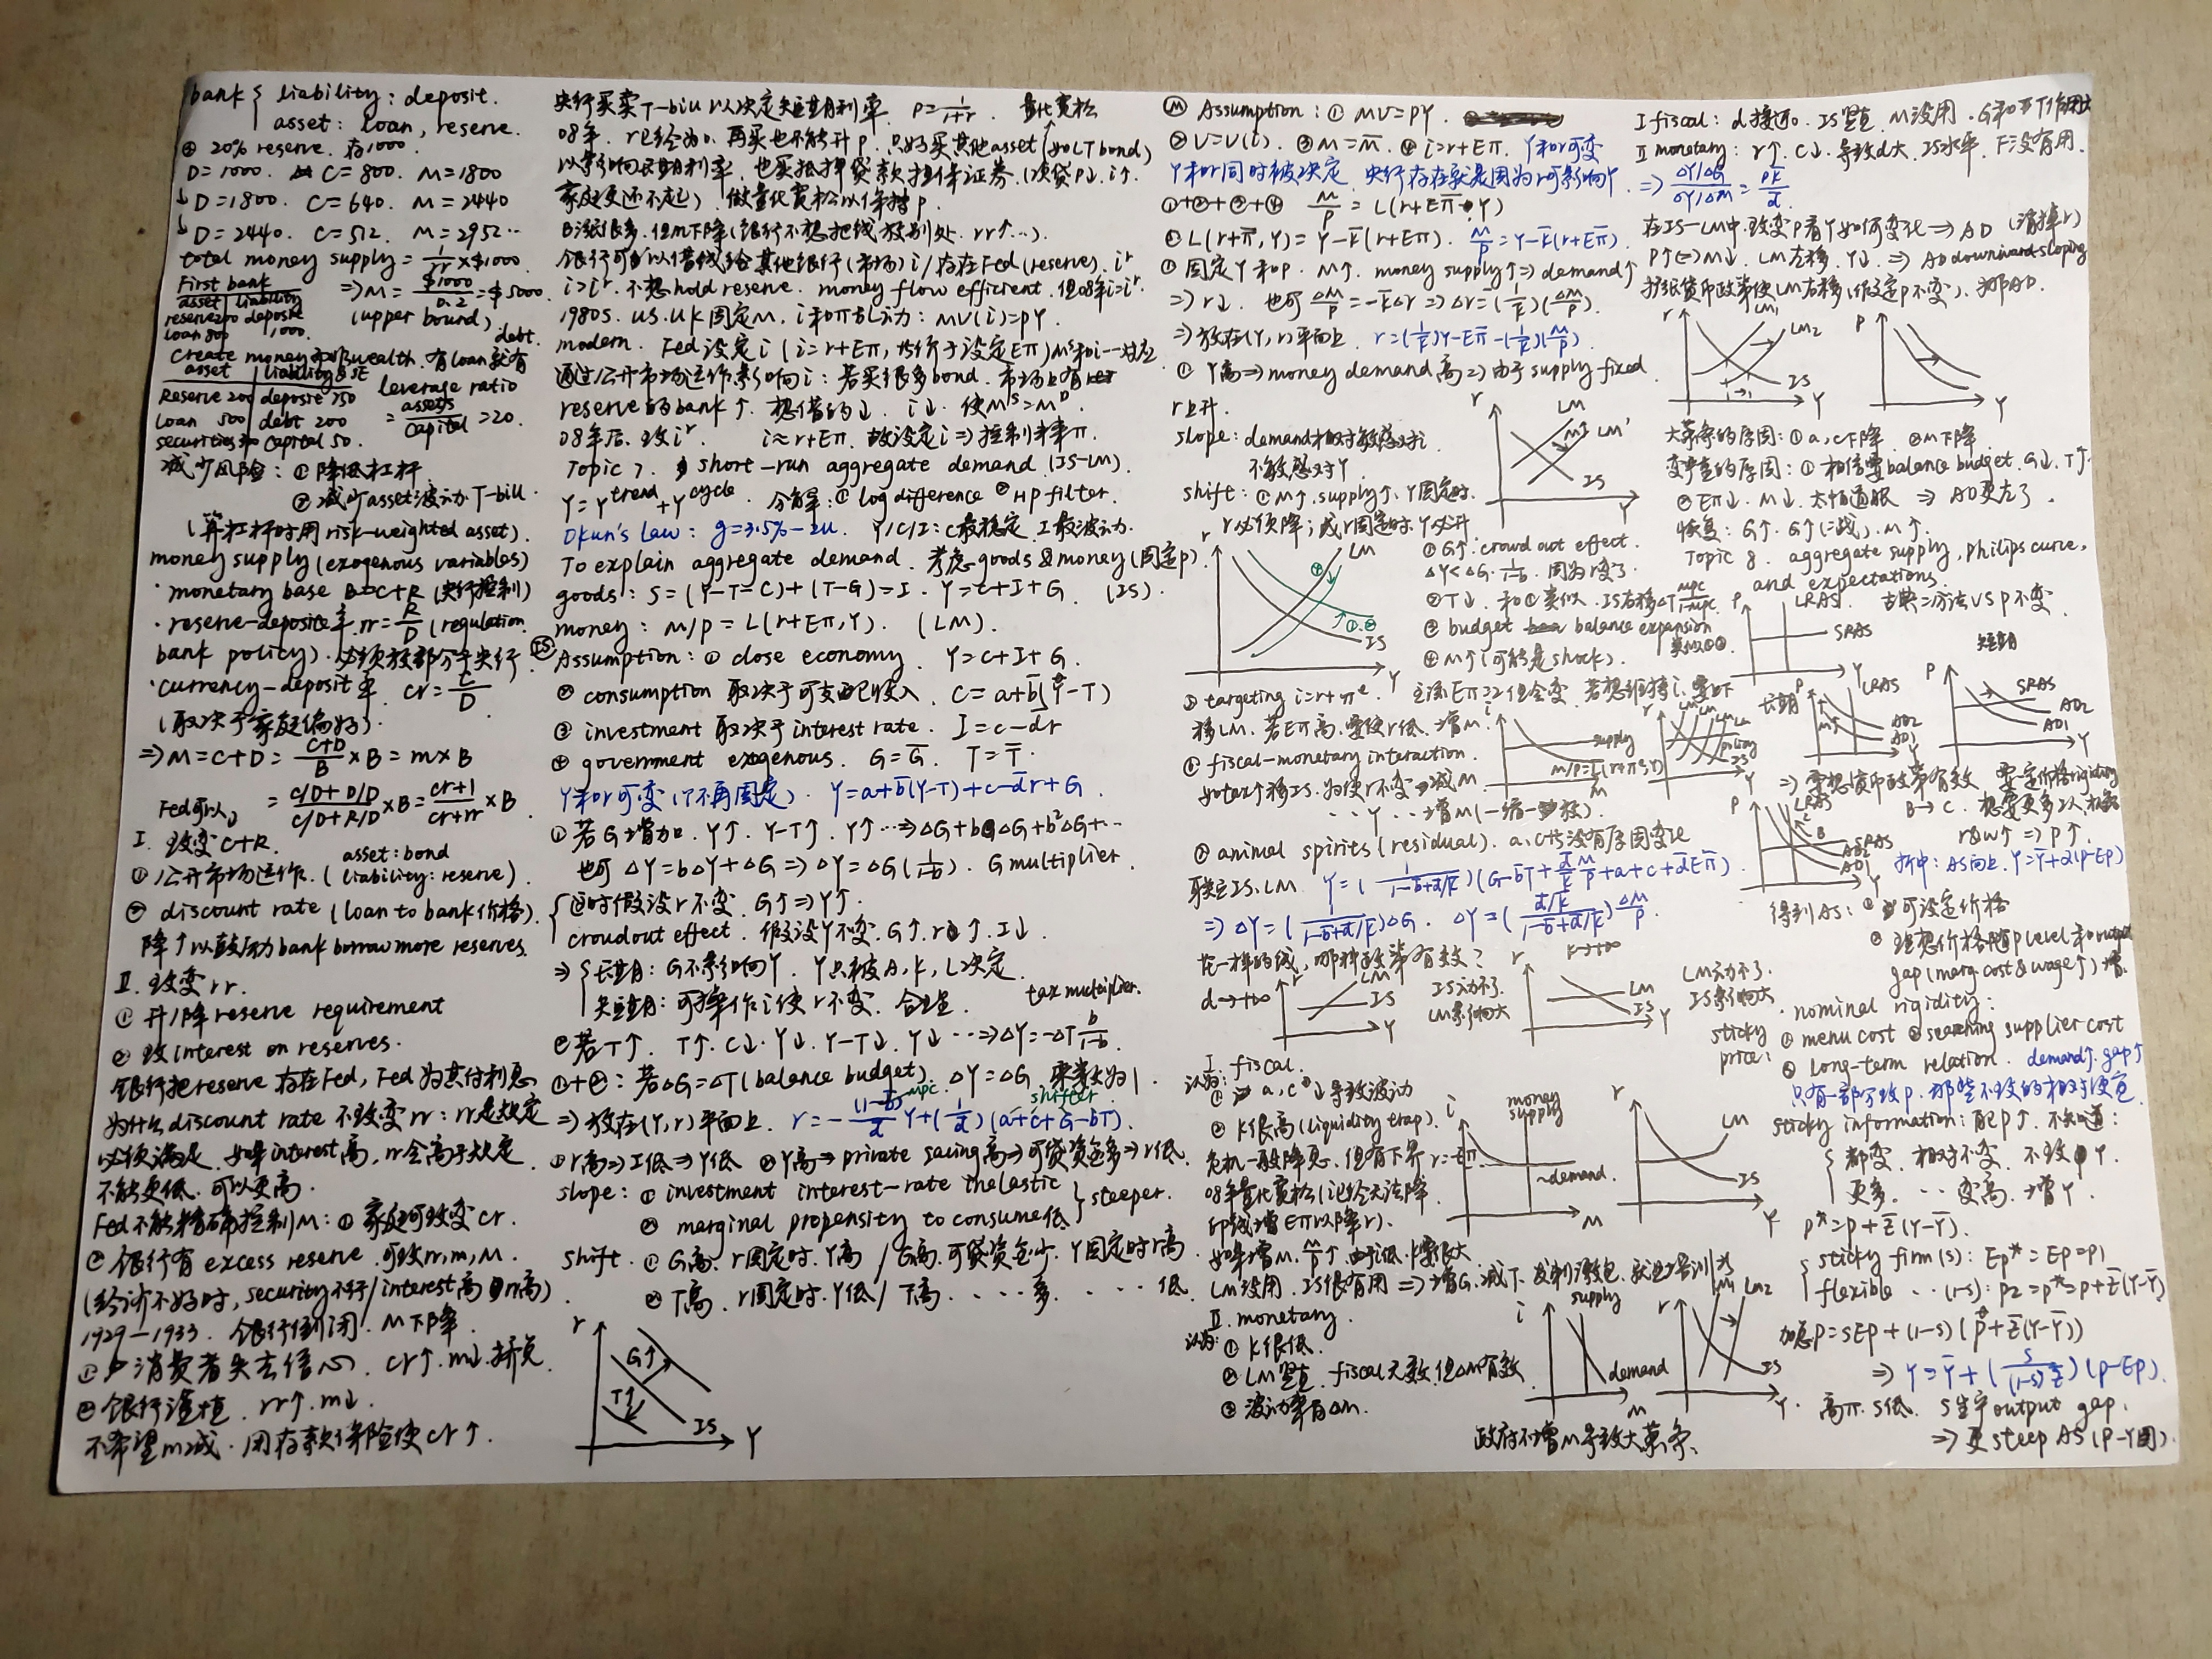 bank { liability: deposit.
asset: loan, reserve.
④ 20% reserve. 存1000.
D=1000. C=800. M=1800
↓ D=1800. C=640. M=2440
↓ D=2440. C=512. M=2952…
total money supply = 1/rr × $1000
First bank
asset | liability
reserve 200 deposit
loan 800 1,000.
⇒ M = $1000/0.2 = $5000
(upper bound)
debt.
create money 而非wealth. 有loan就有
asset | liability & SE
Reserve 200 | deposit 750
loan 500 | debt 200
securities 300 capital 50.
leverage ratio
= assets/capital = 20.
减少风险: ① 降低杠杆
② 减少asset波动. T-bill.
(算杠杆时用 risk-weighted asset).
money supply (exogenous variables)
· monetary base B=C+R (央行控制)
· reserve-deposit率 rr = R/D (regulation
bank policy). 必须放部分于央行
· currency-deposit率 cr = C/D
(取决于家庭偏好).
⇒ M = C+D = (C+D)/B × B = m × B
= (C/D+D/D)/(C/D+R/D) × B = (cr+1)/(cr+rr) × B
Fed可以
I. 改变 C+R.
① 公开市场运作. (asset: bond
liability: reserve).
② discount rate (loan to bank价格).
降↑以鼓动bank borrow more reserves.
II. 改变 rr.
① 升/降 reserve requirement
② 改 interest on reserves.
银行把reserve 存在Fed, Fed为其付利息
为什么 discount rate 不改变 rr: rr是规定
必须满足. 如果interest高, rr会高于规定
不能更低. 可以更高.
Fed 不能精确控制M: ① 家庭可改变 cr.
② 银行有 excess reserve. 可改rr, m, M.
(经济不好时, security不行/interest高 rr高)
1929-1933. 银行倒闭. M下降.
① 消费者失去信心. cr↑. m↓. 挤兑
② 银行谨慎. rr↑. m↓.
不希望m减. 用存款保险使cr↑.
央行买卖T-bill 以决定短期利率. P=1/(1+r) 量化宽松
08年. r已经为0. 再买也不能升p. 只好买其他asset (如LT bond)
以影响长期利率. 也买抵押贷款担保证券. (次贷P↓. i↑.
家庭更还不起). 做量化宽松以保持p.
B涨很多. 但m下降(银行不想把钱放别处. rr↑…).
银行可以借钱给其他银行(市场) i / 存在Fed (reserve). iʳ
i>iʳ. 不想hold reserve. money flow efficient. 但08年i=iʳ.
1980s. US. UK固定M. i和π乱动: MV(i)=PY.
modern. Fed设定i (i=r+Eπ, 均价于设定Eπ) Mˢ和i一一对应
通过公开市场运作影响i: 若买很多bond. 市场上有
reserve的bank↑. 想借的↓. i↓. 使Mˢ=Mᴰ.
08年后. 改iʳ. i≈r+Eπ. 故设定i ⇒ 控制未来π.
Topic 7. short-run aggregate demand (IS-LM).
Y=Y^trend+Y^cycle. 分解: ① log difference ② HP filter.
Okun's Law: g=3.5%-2u. Y/C/I: C最稳定. I最波动.
To explain aggregate demand. 考虑goods & money (固定p).
goods: S=(Y-T-C)+(T-G)=I. Y=C+I+G. (IS).
money: M/P=L(r+Eπ,Y). (LM).
(IS) Assumption: ① close economy. Y=C+I+G.
② consumption 取决于可支配收入. C=a+b̄(Y-T)
③ investment 取决于 interest rate. I=c-d̄r
④ government exogenous. G=Ḡ. T=T̄.
Y和r可变 (Y不再固定). Y=a+b̄(Y-T)+c-d̄r+G
① 若G增加. Y↑. Y-T↑. Y↑…⇒ΔG+bΔG+b²ΔG+…
也可 ΔY=bΔY+ΔG ⇒ ΔY=ΔG(1/(1-b)). G multiplier.
{ 这时假设r不变. G↑⇒Y↑.
crowdout effect. 假设Y不变. G↑. r↑. I↓.
⇒ { 长期: G不影响Y. Y只被A, K, L决定.
短期: 可操作i使r不变. 合理. tax multiplier.
② 若T↑. T↑. C↓. Y↓. Y-T↓. Y↓…⇒ΔY=-ΔT b/(1-b).
①+②: 若ΔG=ΔT (balance budget). ΔY=ΔG 乘数为1.
mpc shifter
⇒ 放在(Y,r)平面上. r=-(1-b̄)/d̄ Y+(1/d̄)(a+c+G-bT).
① r高⇒I低⇒Y低 ② Y高⇒private saving高⇒可贷资金多⇒r低.
slope: ① investment interest-rate inelastic } steeper.
② marginal propensity to consume低
shift. ① G高. r固定时. Y高 / G高. 可贷资金少. Y固定时r高.
② T高. r固定时. Y低 / T高. …多. …低.
r G↑ T↑ IS Y
(LM) Assumption: ① MV=PY.
② V=V(i). ③ M=M̄. ④ i=r+Eπ. Y和r可变
Y和r同时被决定. 央行存在就是因为r可影响Y.
①+②+③+④ M/P=L(r+Eπ̄, Y)
① L(r+π̄,Y)=Y-k̄(r+Eπ). M/P=Y-k̄(r+Eπ̄).
① 固定Y和P. M↑. money supply↑⇒demand↑
⇒r↓. 也可 ΔM/P=-k̄Δr ⇒ Δr=(1/k̄)(ΔM/P).
⇒ 放在(Y,r)平面上. r=(1/k̄)Y-Eπ̄-(1/k̄)(M/P)
① Y高⇒money demand高⇒由于supply fixed.
r上升.
slope: demand相对敏感对i.
不敏感对Y.
r LM M↑ LM' IS
shift: ① M↑. supply↑. Y固定时.
r必须降; 或r固定时. Y必升
r LM IS Y
① G↑. crowd out effect.
ΔY<ΔG·1/(1-b). 因为r变了.
② T↓. 和①类似. IS右移ΔT mpc/(1-mpc)
③ budget balance expansion
类似①②
④ M↑ (可能是shock).
⑤ targeting i=r+πᵉ. 主流Eπ≈2但会变. 若想维持i. 要
移LM. 若Eπ高. 要使r低. 增M.
⑥ fiscal-monetary interaction.
如tax↑移IS. 为使r不变. 减M
…Y…增M (一缩一放).
i supply M/P=L(r+πᵉ,Y) M
r LM LM LM policy IS Y
⑦ animal spirits (residual). a, c均没有原因变化
联立IS. LM. Y=(1/(1-b̄+d̄/k̄))(G-b̄T+d̄/k̄ M/P+a+c+d̄Eπ̄)
⇒ ΔY=(1/(1-b̄+d̄/k̄))ΔG. ΔY=((d̄/k̄)/(1-b̄+d̄/k̄))ΔM/P.
花一样的钱, 哪种政策有效?
d→+∞ r LM IS Y
IS动不了.
LM影响大
k→+∞ r LM IS Y
LM动不了.
IS影响大
I. fiscal.
认为: ① a, c↓导致波动
② k很高 (liquidity trap).
危机一般降息. 但有下界r=-Eπ.
08年量化宽松(已经无法降.
印钱增Eπ以降r).
如果增M. M/P↑. 由于i低. k要很大
LM没用. IS很有用 ⇒ 增G. 减T. 发消费包. 就业培训
i money supply demand. M
r LM IS Y
II. monetary.
认为: ① k很低.
② LM竖直. fiscal无效. 但ΔM有效
③ 波动率自ΔM.
i supply demand M
r LM LM2 IS Y
政府不增M导致大萧条.
I fiscal: d接近0. IS竖直. M没用. G和T作用大
II monetary: r↑. C↓. 导致d大. IS水平. F没有用.
⇒ (ΔY/ΔG)/(ΔY/ΔM)=Pk̄/d̄
在IS-LM中. 改变P看Y如何变化⇒AD (消掉r)
P↑⇔M↓. LM左移. Y↓. ⇒AD downward sloping
扩张货币政策使LM右移(假定P不变). 右移AD.
r LM₁ LM₂ IS Y
P Y
大萧条的原因: ① a, c下降 ② M下降.
变严重的原因: ① 相信要balance budget. G↓. T↑
② Eπ↓. M↓. 太怕通胀 ⇒ AD更左了.
恢复: G↑. G↑(二战). M↑.
Topic 8. aggregate supply, Philips curve,
and expectations
P LRAS SRAS Y
古典二分法VS P不变.
短期
长期 P LRAS M↑ AD2 AD1 Y
P SRAS AD2 AD1 Y
⇒ 要想货币政策有效. 要一定价格rigidity
P LRAS B SRAS AD2 AD1 Y
B→C. 想要更多
r&w↑⇒P↑.
折中: AS向上. Y=Ȳ+α(P-EP)
得到AS: ① 可设定价格
② 理想价格随P level和output
gap (marg cost & wage↑)增.
nominal rigidity:
sticky price: ① menu cost ② searching supplier cost
③ long-term relation. demand↑. gap↑
只有一部分改P. 那些不改的相对便宜
sticky information: 配P↑. 不知道:
{ 都变. 相对不变. 不改Y.
更多. … 变高. 增Y.
P*=P+z̄(Y-Ȳ).
{ sticky firm (s): EP*=EP=P1
flexible … (1-s): P2=P*=P+z̄(Y-Ȳ)
加总P=sEP+(1-s)(P+z̄(Y-Ȳ))
⇒ Y=Ȳ+(s/((1-s)z̄))(P-EP).
高π. s低. s生于output gap.
⇒ 更steep AS (P-Y图).